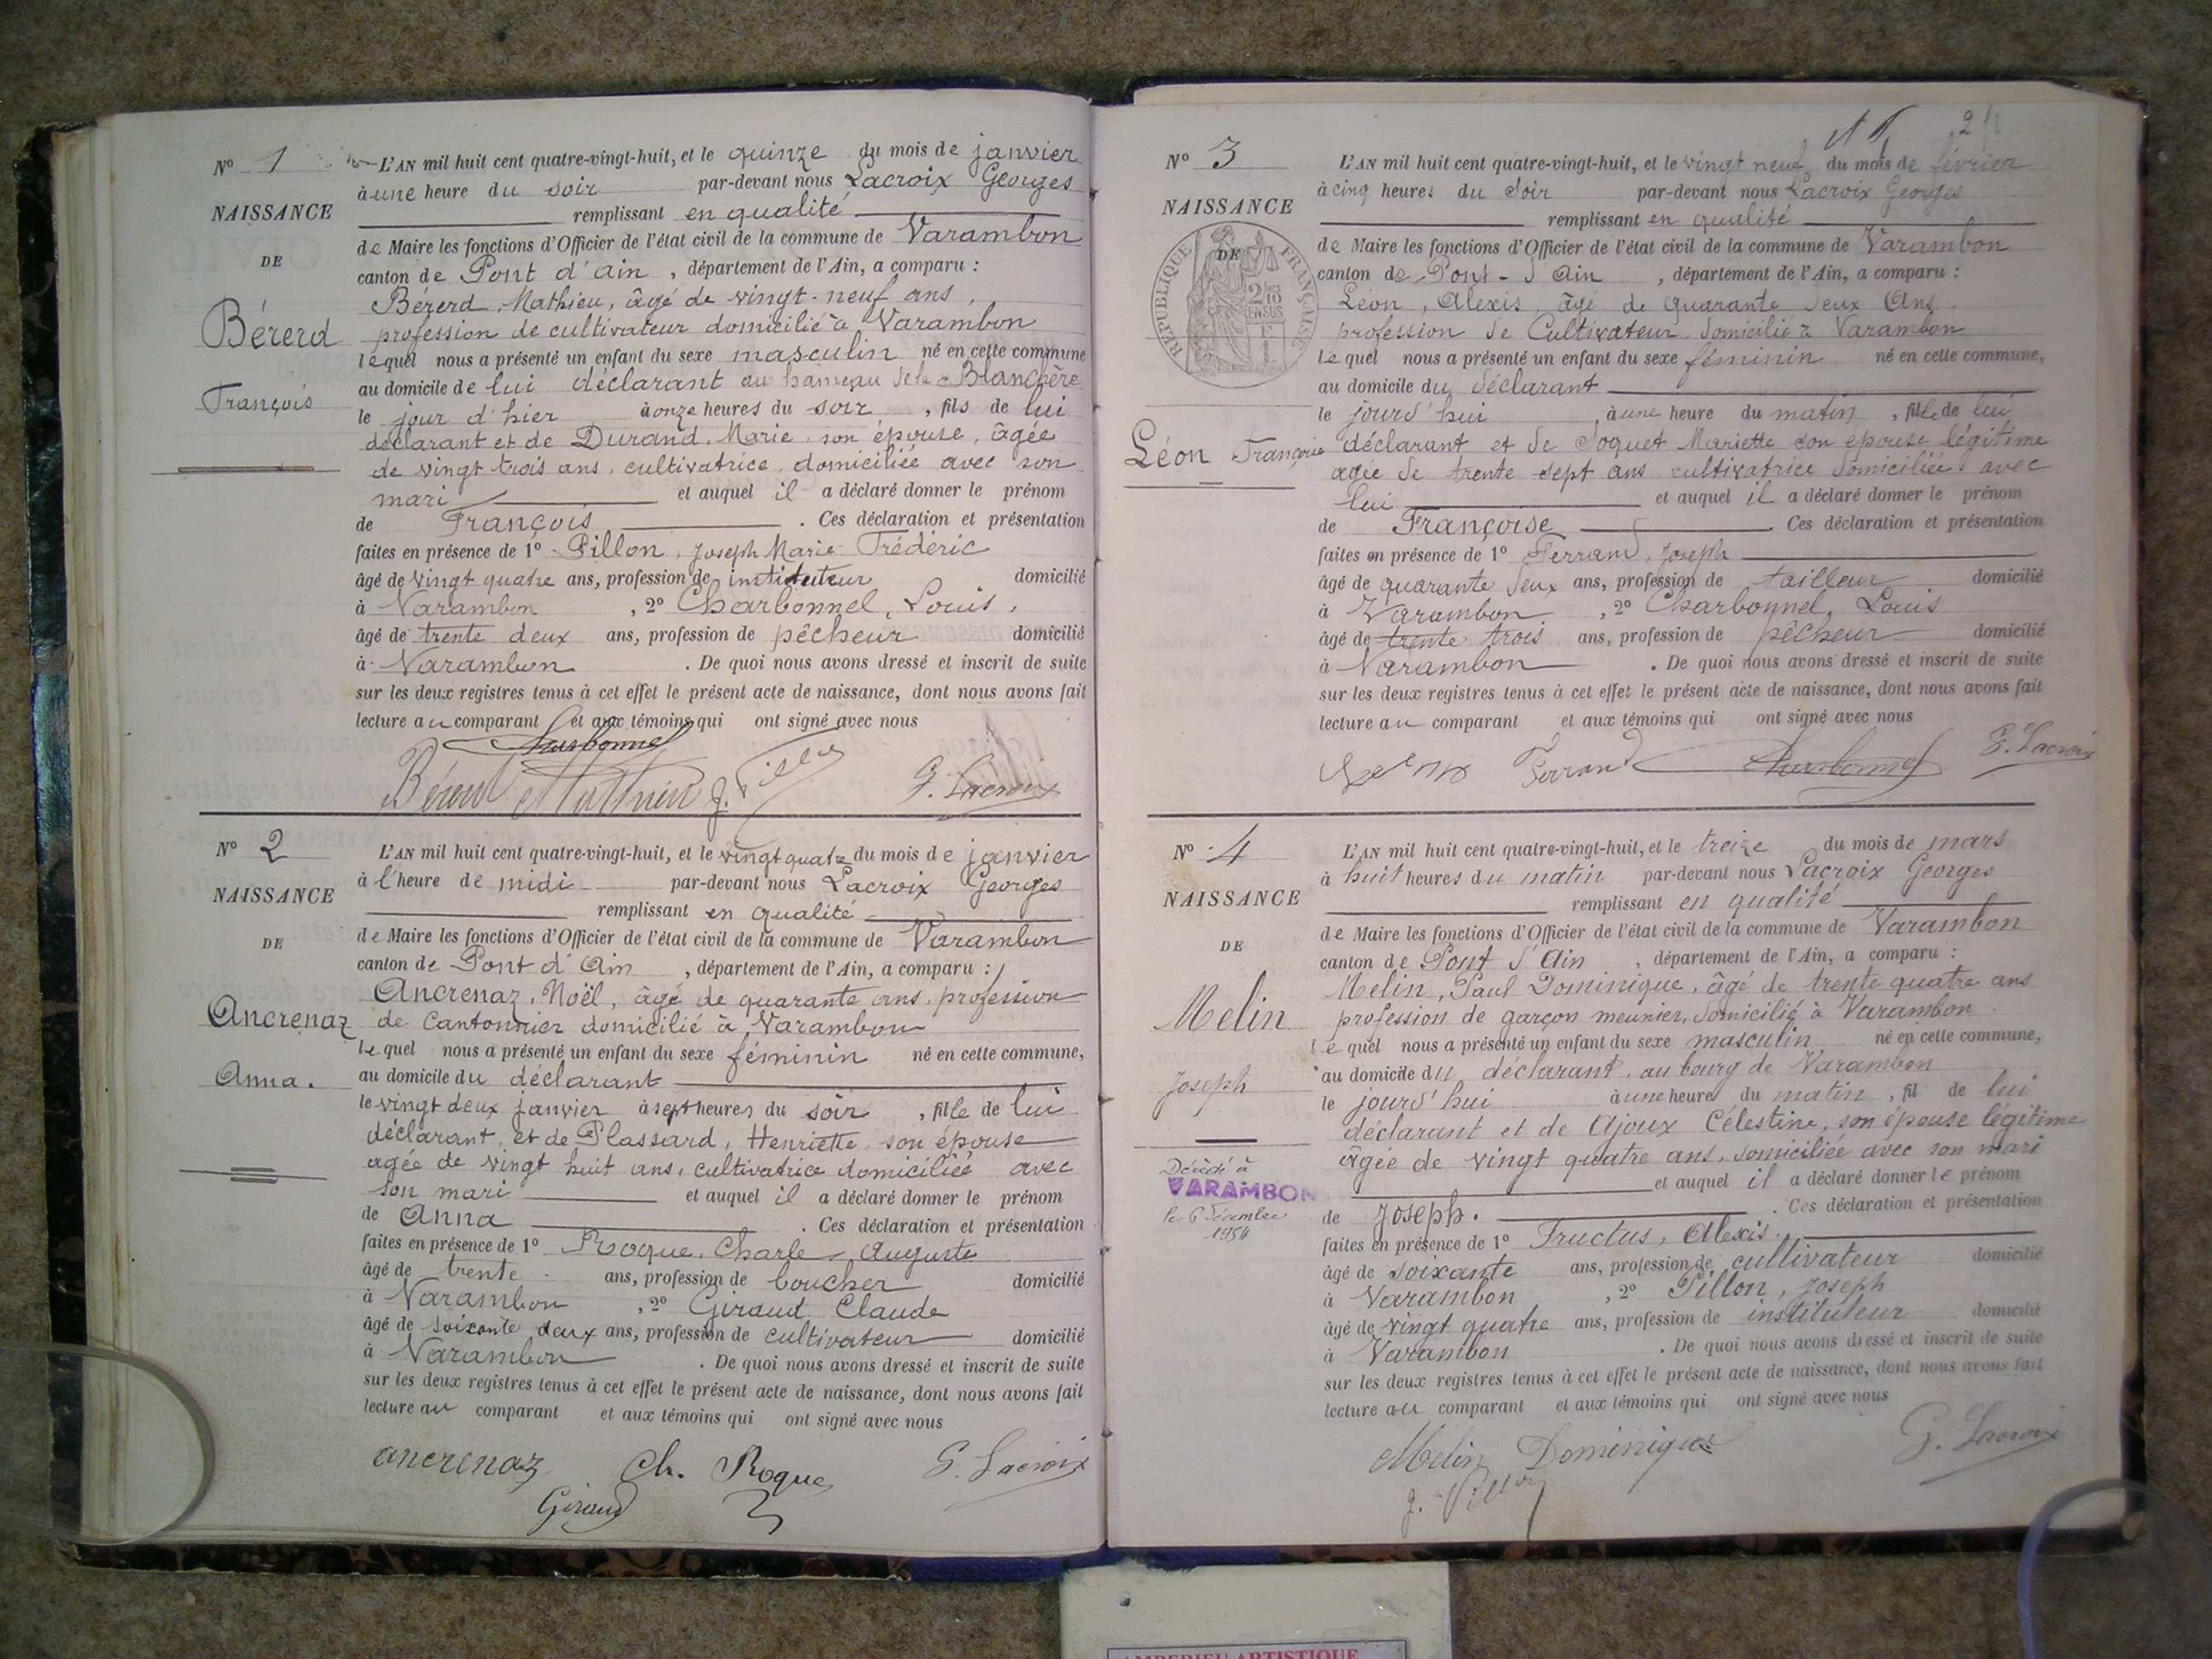 N° 1
NAISSANCE
DE
Bérerd
François
L'AN mil huit cent quatre-vingt-huit, et le quinze du mois de janvier
à une heure du soir par-devant nous Lacroix Georges
remplissant en qualité
de Maire les fonctions d'Officier de l'état civil de la commune de Varambon
canton de Pont d'ain, département de l'Ain, a comparu :
Bérerd, Mathieu, âgé de vingt-neuf ans,
profession de cultivateur domicilié à Varambon
lequel nous a présenté un enfant du sexe masculin né en cette commune
au domicile de lui déclarant au hameau de la Blanchère
le jour d'hier à onze heures du soir, fils de lui
déclarant et de Durand, Marie, son épouse, âgée
de vingt trois ans, cultivatrice, domiciliée avec son
mari et auquel il a déclaré donner le prénom
de François. Ces déclaration et présentation
faites en présence de 1° Pillon, Joseph Marie Frédéric
âgé de vingt quatre ans, profession de instituteur domicilié
à Varambon, 2° Charbonnel, Louis,
âgé de trente deux ans, profession de pêcheur domicilié
à Varambon. De quoi nous avons dressé et inscrit de suite
sur les deux registres tenus à cet effet le présent acte de naissance, dont nous avons fait
lecture au comparant et aux témoins qui ont signé avec nous
Charbonnel
Bérerd Mathieu J. Pillon G. Lacroix
N° 2
NAISSANCE
DE
Ancrenaz
Anna.
L'AN mil huit cent quatre-vingt-huit, et le vingt quatre du mois de janvier
à l'heure de midi par-devant nous Lacroix Georges
remplissant en qualité
de Maire les fonctions d'Officier de l'état civil de la commune de Varambon
canton de Pont d'Ain, département de l'Ain, a comparu :
Ancrenaz, Noël, âgé de quarante ans, profession
de Cantonnier domicilié à Varambon
lequel nous a présenté un enfant du sexe féminin né en cette commune,
au domicile du déclarant
le vingt deux janvier à sept heures du soir, fille de lui
déclarant, et de Plassard, Henriette, son épouse
agée de vingt huit ans, cultivatrice domiciliée avec
son mari et auquel il a déclaré donner le prénom
de Anna. Ces déclaration et présentation
faites en présence de 1° Roque, Charle, Auguste
âgé de trente ans, profession de boucher domicilié
à Varambon, 2° Giraud Claude
âgé de soixante deux ans, profession de cultivateur domicilié
à Varambon. De quoi nous avons dressé et inscrit de suite
sur les deux registres tenus à cet effet le présent acte de naissance, dont nous avons fait
lecture au comparant et aux témoins qui ont signé avec nous
ancrenaz Ch. Roque G. Lacroix
Giraud
2
N° 3
NAISSANCE
DE
RÉPUBLIQUE FRANÇAISE
Léon Françoise
L'AN mil huit cent quatre-vingt-huit, et le vingt neuf du mois de février
à cinq heures du soir par-devant nous Lacroix Georges
remplissant en qualité
de Maire les fonctions d'Officier de l'état civil de la commune de Varambon
canton de Pont-d'Ain, département de l'Ain, a comparu :
Léon, Alexis, âgé de quarante deux Ans
profession de Cultivateur domicilié à Varambon
lequel nous a présenté un enfant du sexe féminin né en cette commune,
au domicile du déclarant
le jourd'hui, à une heure du matin, fille de lui
déclarant et de Joquet Mariette son épouse légitime
agée de trente sept ans cultivatrice domiciliée avec
lui et auquel il a déclaré donner le prénom
de Françoise. Ces déclaration et présentation
faites en présence de 1° Ferrand, Joseph
âgé de quarante deux ans, profession de tailleur domicilié
à Varambon, 2° Charbonnel, Louis
âgé de trente trois ans, profession de pêcheur domicilié
à Varambon. De quoi nous avons dressé et inscrit de suite
sur les deux registres tenus à cet effet le présent acte de naissance, dont nous avons fait
lecture au comparant et aux témoins qui ont signé avec nous
Ferrand Charbonnel G. Lacroix
N° 4
NAISSANCE
DE
Melin
Joseph
Décédé à
VARAMBON
le 6 décembre
1954
L'AN mil huit cent quatre-vingt-huit, et le treize du mois de mars
à huit heures du matin par-devant nous Lacroix Georges
remplissant en qualité
de Maire les fonctions d'Officier de l'état civil de la commune de Varambon
canton de Pont d'Ain, département de l'Ain, a comparu :
Melin, Paul Dominique, âgé de trente quatre ans
profession de garçon meunier, domicilié à Varambon
lequel nous a présenté un enfant du sexe masculin né en cette commune,
au domicile du déclarant, au bourg de Varambon
le jourd'hui à une heure du matin, fil de lui
déclarant et de Ajoux Célestine, son épouse légitime
âgée de vingt quatre ans, domiciliée avec son mari
et auquel il a déclaré donner le prénom
de Joseph. Ces déclaration et présentation
faites en présence de 1° Fructus, Alexis.
âgé de soixante ans, profession de cultivateur domicilié
à Varambon, 2° Pillon, Joseph
âgé de vingt quatre ans, profession de instituteur domicilié
à Varambon. De quoi nous avons dressé et inscrit de suite
sur les deux registres tenus à cet effet le présent acte de naissance, dont nous avons fait
lecture au comparant et aux témoins qui ont signé avec nous
Melin Dominique G. Lacroix
J. Pillon
AMBERIEU ARTISTIQUE